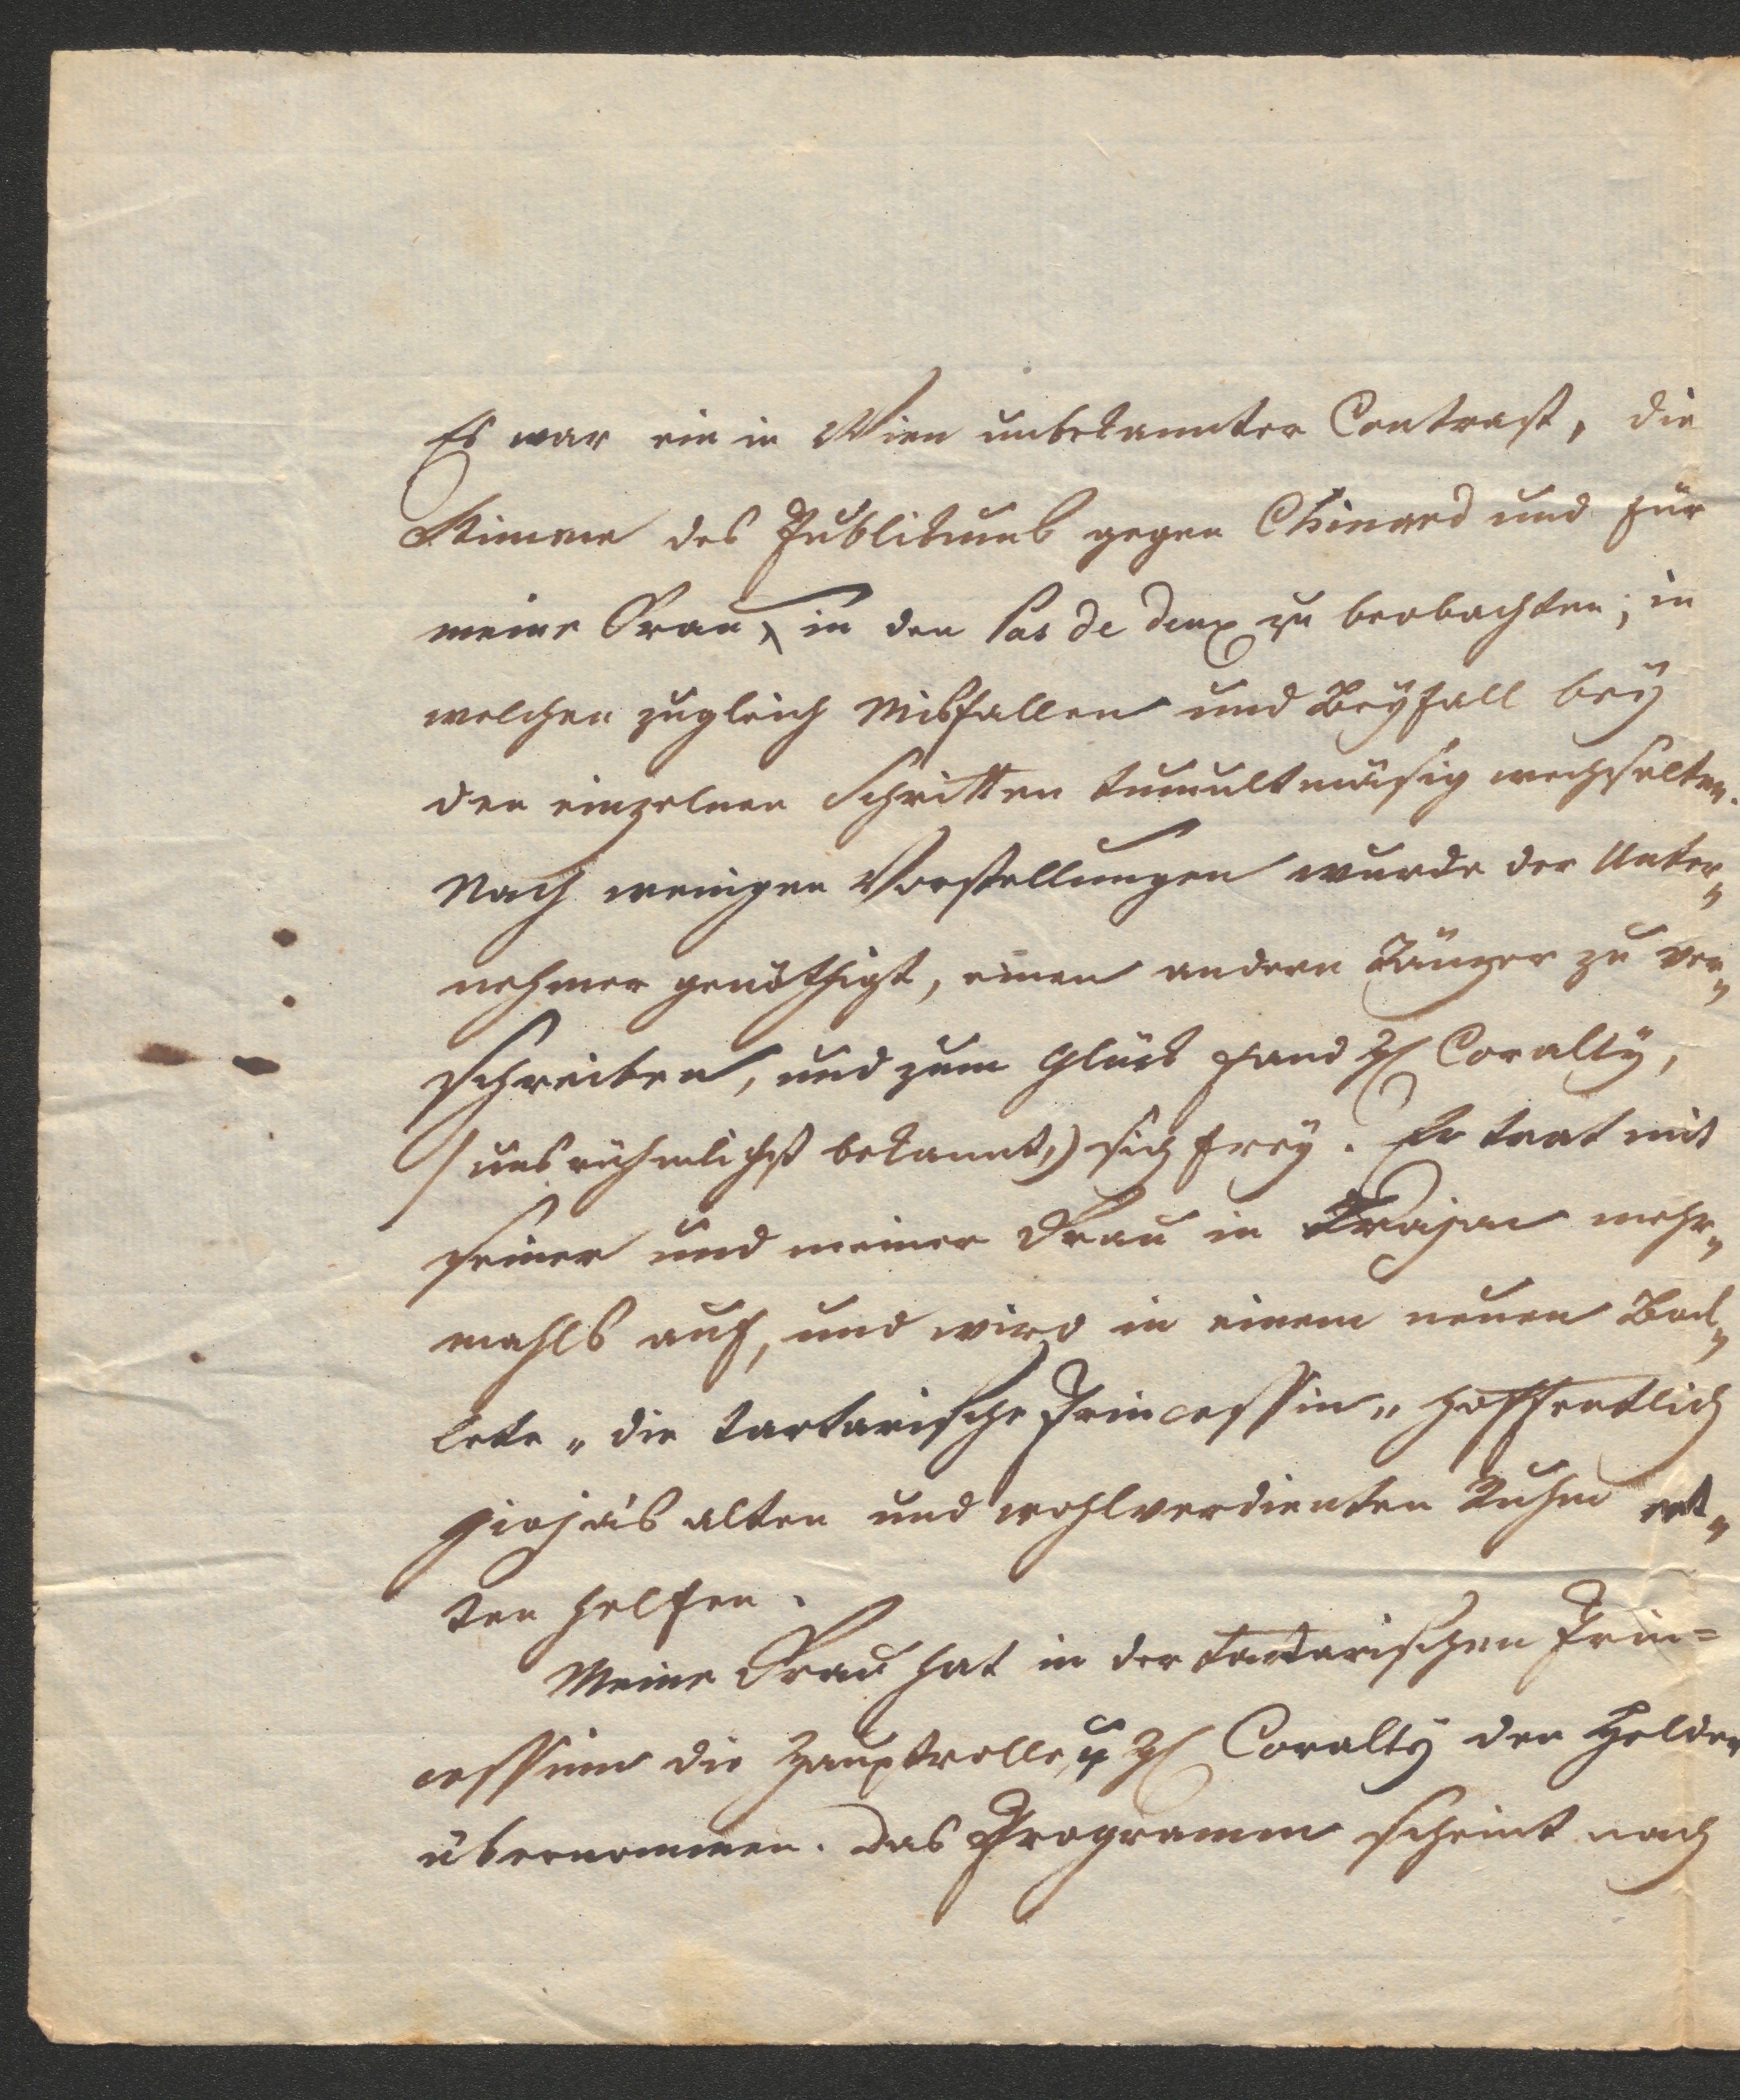 Es war ein in Wien unbekannter Contrast, die
Stimme des Publikums gegen Chinard und für
meine Frau, in den Pas de deux zu beobachten; in
welchen zugleich Misfallen und Beyfall bey
den einzelnen Schritten tumultmäsig wechselten.
Nach wenigen Vorstellungen wurde der Unter„
nehmer genöthigt, einen andern Tänzer zu ver„
schreiben, und zum Glück fand H Coralty,
/uns rühmlichst bekannt,) sich frey. Er trat mit
seiner und meiner Frau in Trajan mehr„
mahls auf, und wird in einem neuen Bal„
lete „die tartarische Princessin„ hoffentlich
Giojas alten und wohlverdienten Ruhm ret„
ten helfen.
Meine Frau hat in der tartarischen Prin=
cessinn die Hauptrolle, u H Coralty den Helden
übernommen. Das Programm scheint nach